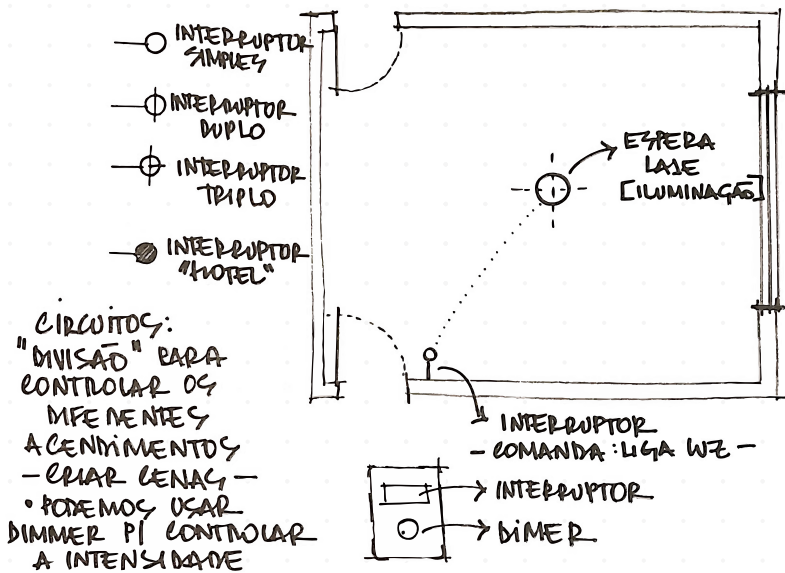 INTERRUPTOR
SIMPLES
INTERRUPTOR
DUPLO
INTERRUPTOR
TRIPLO
INTERRUPTOR
"HOTEL"
ESPERA
LAJE
[ILUMINAÇÃO]
CIRCUITOS:
"DIVISÃO" PARA
CONTROLAR OS
DIFERENTES
ACENDIMENTOS
- CRIAR CENAS -
• PODEMOS USAR
DIMMER P/ CONTROLAR
A INTENSIDADE
INTERRUPTOR
- COMANDA: LIGA LUZ -
INTERRUPTOR
DIMER